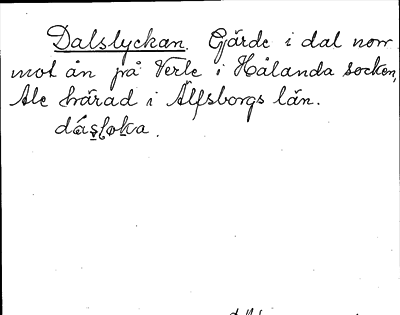 Dalslyckan. Gjärde i dal norr
mot ån på Verle i Hålanda socken,
Ale härad i Älfsborgs län.